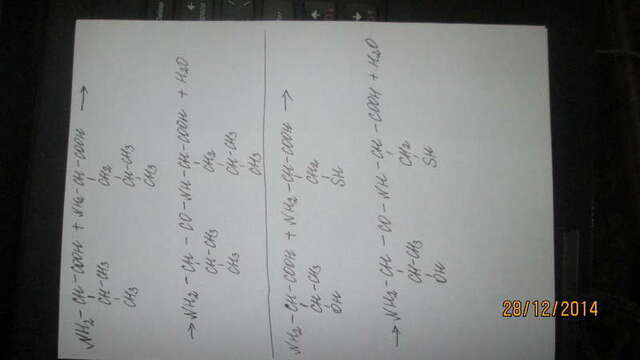 NH2-CH-COOH + NH2-CH-COOH →
CH-CH3 CH2
CH3 CH-CH3
CH3
→ NH2-CH-CO-NH-CH-COOH + H2O
CH-CH3 CH2
CH3 CH-CH3
CH3
NH2-CH-COOH + NH2-CH-COOH →
CH-CH3 CH2
OH SH
→ NH2-CH-CO-NH-CH-COOH + H2O
CH-CH3 CH2
OH SH
28/12/2014